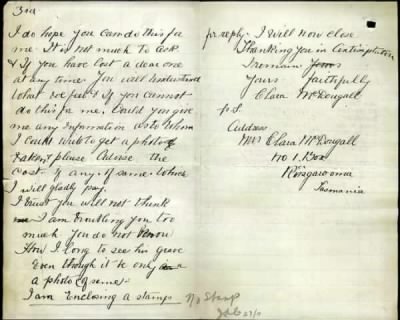 3rd
I do hope you can do this for
me. It is not much to ask
& if you have lost a dear one
at any time. You will understand
what we feel & if you cannot
do this for me. Could you give
me any information as to whom
I could write to get a photo
taken, & please advise the
cost if any of same. Which
I will gladly pay.
I trust you will not think
I am troubling you too
much you do not know
How I long to see his grave
Even though it be only
a photo of same.
I am enclosing a stamp
for reply. I will now close
Thanking you in anticipation
I remain Yours
Yours faithfully
Clara McDougall
P.S.
Address
Mrs Clara McDougall
No 1. Box
Ringarooma
Tasmania
No Stamp